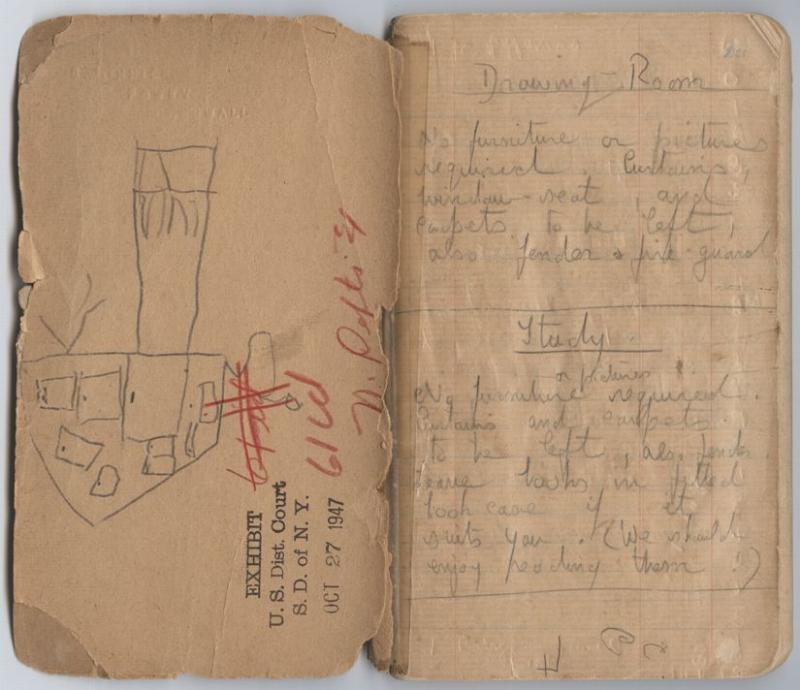 EXHIBIT
U. S. Dist. Court
S. D. of N. Y.
OCT 27 1947
61cd
Drawing-Room
No furniture or pictures
required. Curtains,
window-seat, and
carpets to be left,
also fender & fire-guard
Study.
or pictures
No furniture required.
Curtains and carpets
to be left, also fender.
Leave books in fitted
book case if it
suits you. (We should
enjoy reading them!)